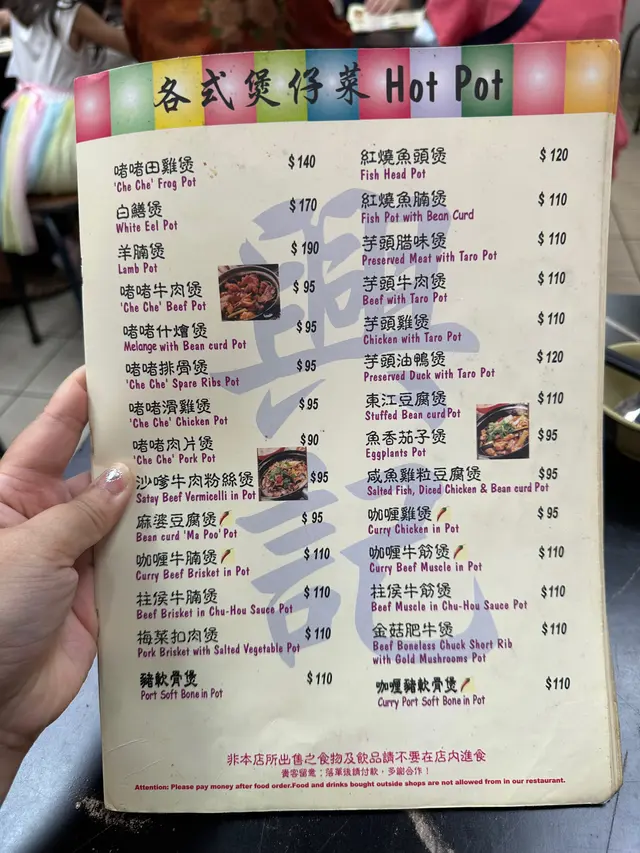 各式煲仔菜 Hot Pot
啫啫田雞煲 $140
'Che Che' Frog Pot
白鱔煲 $170
White Eel Pot
羊腩煲 $190
Lamb Pot
啫啫牛肉煲 $95
'Che Che' Beef Pot
啫啫什燴煲 $95
Melange with Bean curd Pot
啫啫排骨煲 $95
'Che Che' Spare Ribs Pot
啫啫滑雞煲 $95
'Che Che' Chicken Pot
啫啫肉片煲 $90
'Che Che' Pork Pot
沙嗲牛肉粉絲煲 $95
Satay Beef Vermicelli in Pot
麻婆豆腐煲 $95
Bean curd 'Ma Poo' Pot
咖喱牛腩煲 $110
Curry Beef Brisket in Pot
柱侯牛腩煲 $110
Beef Brisket in Chu-Hou Sauce Pot
梅菜扣肉煲 $110
Pork Brisket with Salted Vegetable Pot
豬軟骨煲 $110
Port Soft Bone in Pot
紅燒魚頭煲 $120
Fish Head Pot
紅燒魚腩煲 $110
Fish Pot with Bean Curd
芋頭腊味煲 $110
Preserved Meat with Taro Pot
芋頭牛肉煲 $110
Beef with Taro Pot
芋頭雞煲 $110
Chicken with Taro Pot
芋頭油鴨煲 $120
Preserved Duck with Taro Pot
東江豆腐煲 $110
Stuffed Bean curd Pot
魚香茄子煲 $95
Eggplants Pot
咸魚雞粒豆腐煲 $95
Salted Fish, Diced Chicken & Bean curd Pot
咖喱雞煲 $95
Curry Chicken in Pot
咖喱牛筋煲 $110
Curry Beef Muscle in Pot
柱侯牛筋煲 $110
Beef Muscle in Chu-Hou Sauce Pot
金菇肥牛煲 $110
Beef Boneless Chuck Short Rib
with Gold Mushrooms Pot
咖喱豬軟骨煲 $110
Curry Port Soft Bone in Pot
興記
非本店所出售之食物及飲品請不要在店內進食
貴客留意：落單後請付款，多謝合作！
Attention: Please pay money after food order.Food and drinks bought outside shops are not allowed from in our restaurant.